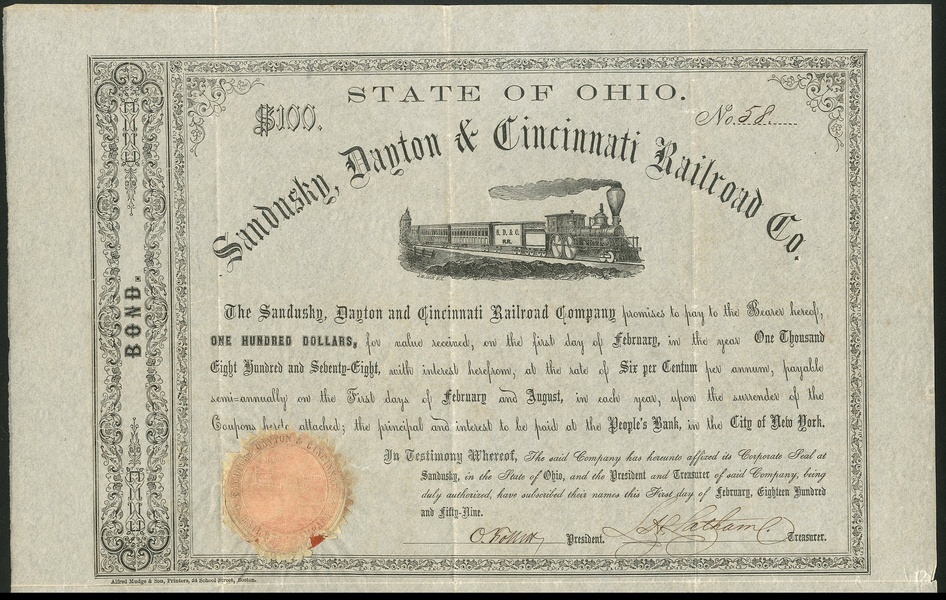 STATE OF OHIO.
$100.
No. 58.
Sandusky, Dayton & Cincinnati Railroad Co.
S. D. & C.
R.R.
BOND.
The Sandusky, Dayton and Cincinnati Railroad Company promises to pay to the Bearer hereof,
ONE HUNDRED DOLLARS, for value received, on the first day of February, in the year One Thousand
Eight Hundred and Seventy-Eight, with interest herefrom, at the rate of Six per Centum per annum, payable
semi-annually on the First days of February and August, in each year, upon the surrender of the
Coupons hereto attached; the principal and interest to be paid at the People's Bank, in the City of New York.
In Testimony Whereof, The said Company has hereunto affixed its Corporate Seal at
Sandusky, in the State of Ohio, and the President and Treasurer of said Company, being
duly authorized, have subscribed their names this First day of February, Eighteen Hundred
and Fifty-Nine.
O. Follett President. Latham Treasurer.
DAYTON & CINCI
Alfred Mudge & Son, Printers, 34 School Street, Boston.